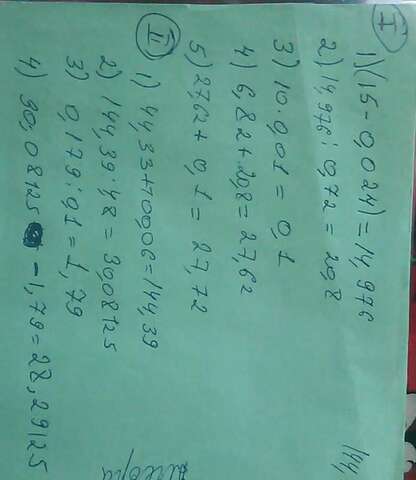 I
1) (15-0,024)=14,976
2) 14,976:0,72 = 20,8
3) 10·0,01 = 0,1
4) 6,82+20,8=27,62
5) 27,62 + 0,1 = 27,72
II
1) 44,33+100,06=144,39
2) 144,39:4,8 = 30,08125
3) 0,179:0,1 = 1,79
4) 30,08125 - 1,79=28,29125
144,